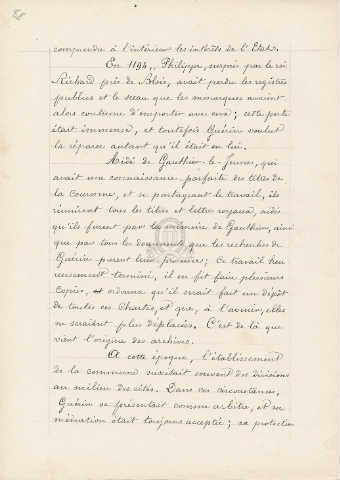 comprendre à l'intérieur les intérêts de l'Etat.
En 1194, Philippe, surpris par le roi
Richard près de Blois, avait perdu les registres
publics et le sceau que les monarques avaient
alors coutume d'emporter avec eux ; cette perte
était immense, et toutefois Guérin voulut
la réparer autant qu'il était en lui.
Aidé de Gauthier-le-Jeune, qui
avait une connaissance parfaite des titres de
la Couronne, et se partageant le travail, ils
réunirent tous les titres et lettres royaux, aidés
qu'ils furent par la mémoire de Gauthier, ainsi
que par tous les documents que les recherches de
Guérin purent leur procurer ; ce travail heu
reusement terminé, il en fit faire plusieurs
copies, et ordonna qu'il serait fait un dépôt
de toutes ces chartes, et que, à l'avenir, elles
ne seraient plus déplacées. C'est de là que
vient l'origine des archives.
A cette époque, l'établissement
de la commune suscitait souvent des divisions
au milieu des cités. Dans ces circonstances,
Guérin se présentait comme arbitre, et sa
médiation était toujours acceptée ; sa protection